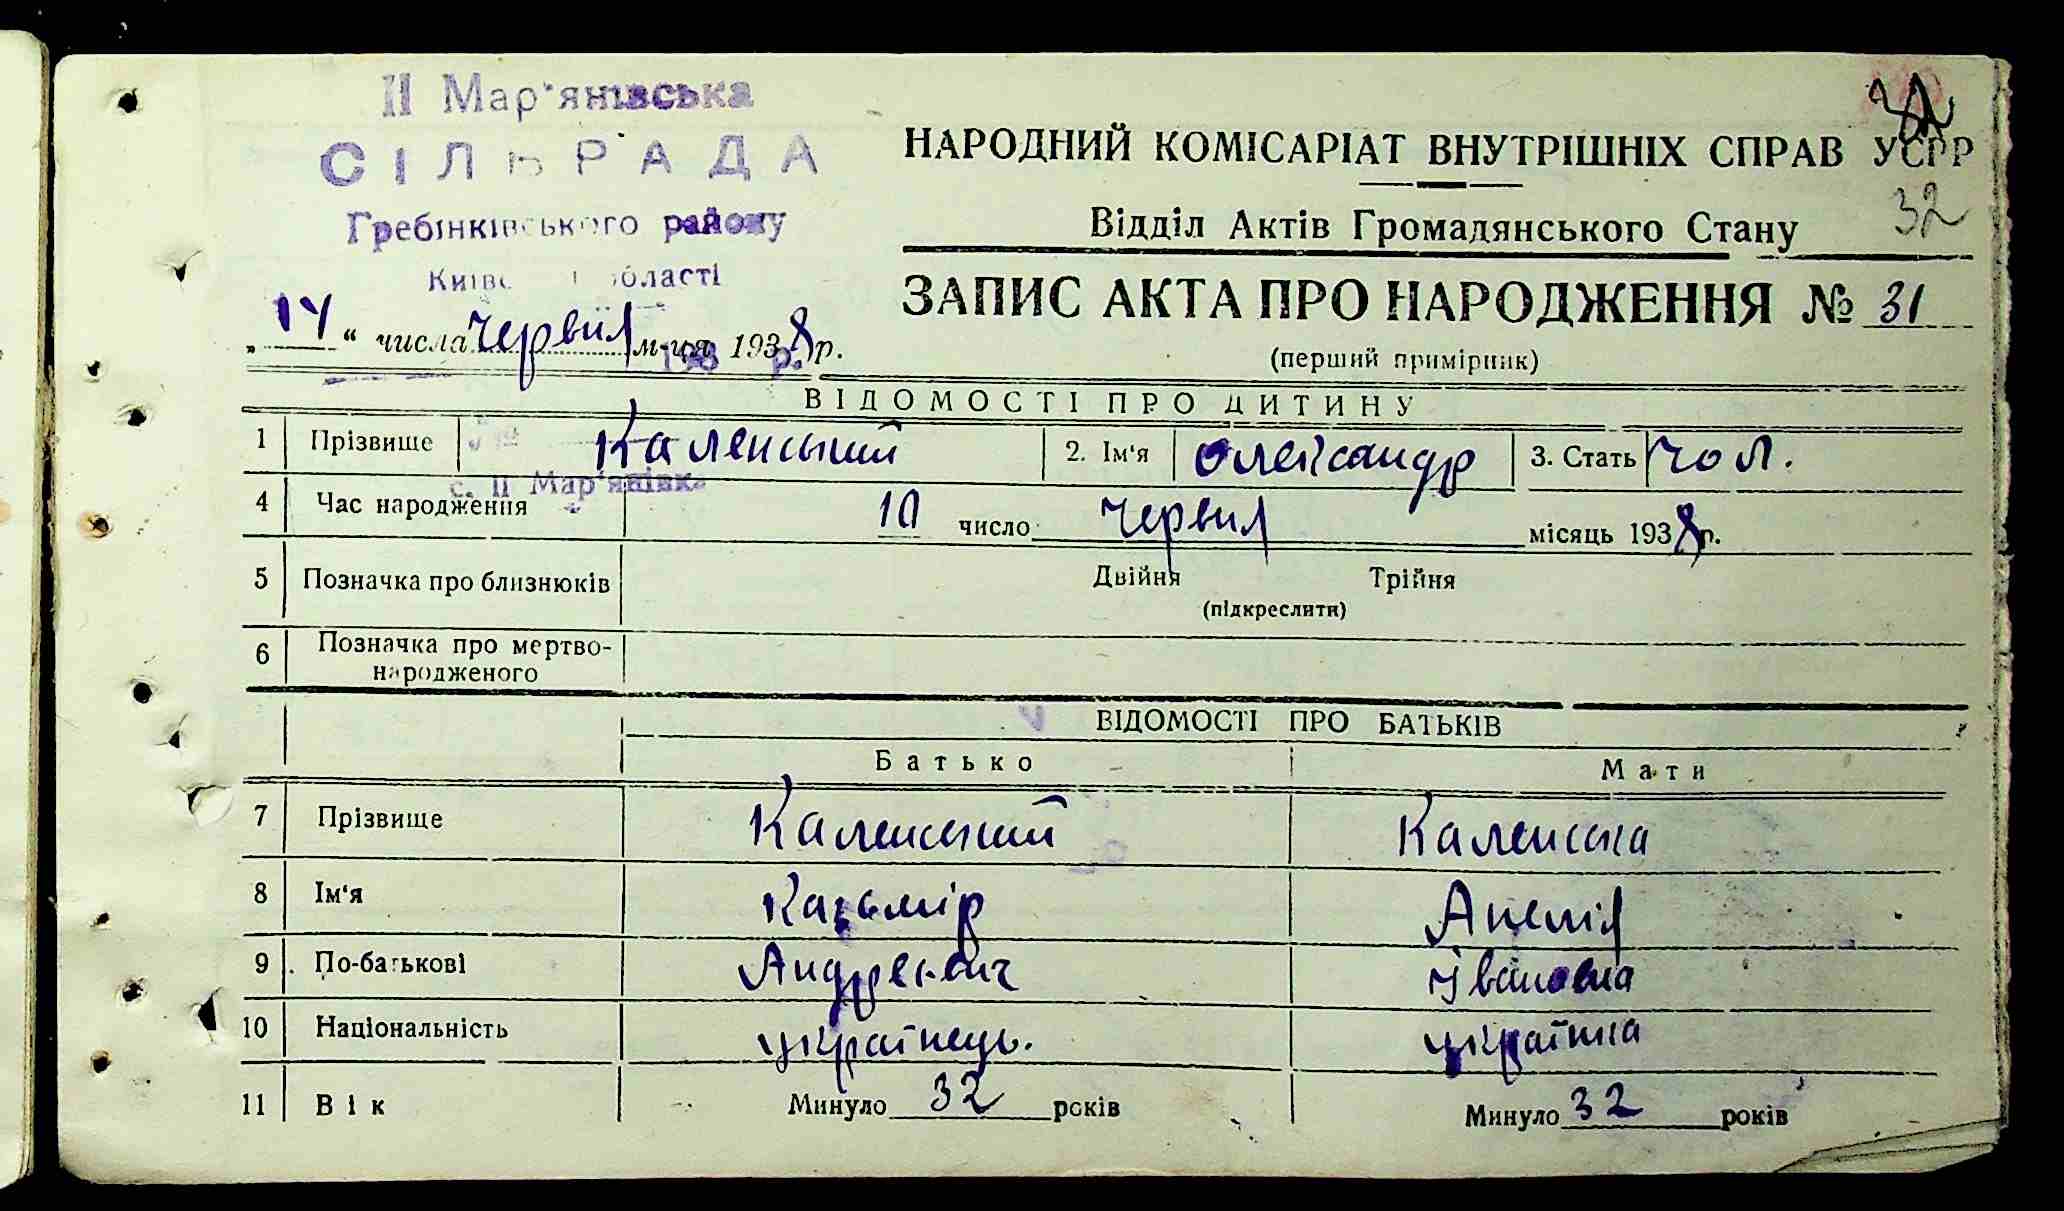 ІІ Мар'янівська
СІЛЬРАДА
Гребінківського району
Київс області
32
НАРОДНИЙ КОМІСАРІАТ ВНУТРІШНІХ СПРАВ УСРР
Відділ Актів Громадянського Стану
32
„14“ числа червня м-ця 1938 р.
193 р.
ЗАПИС АКТА ПРО НАРОДЖЕННЯ № 31
(перший примірник)
ВІДОМОСТІ ПРО ДИТИНУ
1 Прізвище Каленський 2. Ім'я Олександр 3. Стать чол.
с. ІІ Мар'янівка
4 Час народження 10 число червня місяць 1938 р.
5 Позначка про близнюків Двійня Трійня
(підкреслити)
6 Позначка про мертво-
народженого
ВІДОМОСТІ ПРО БАТЬКІВ
Батько Мати
7 Прізвище Каленський Каленська
8 Ім'я Казьмір Анелія
9 По-батькові Андреєвич Івановна
10 Національність українець. українка
11 Вік Минуло 32 років Минуло 32 років